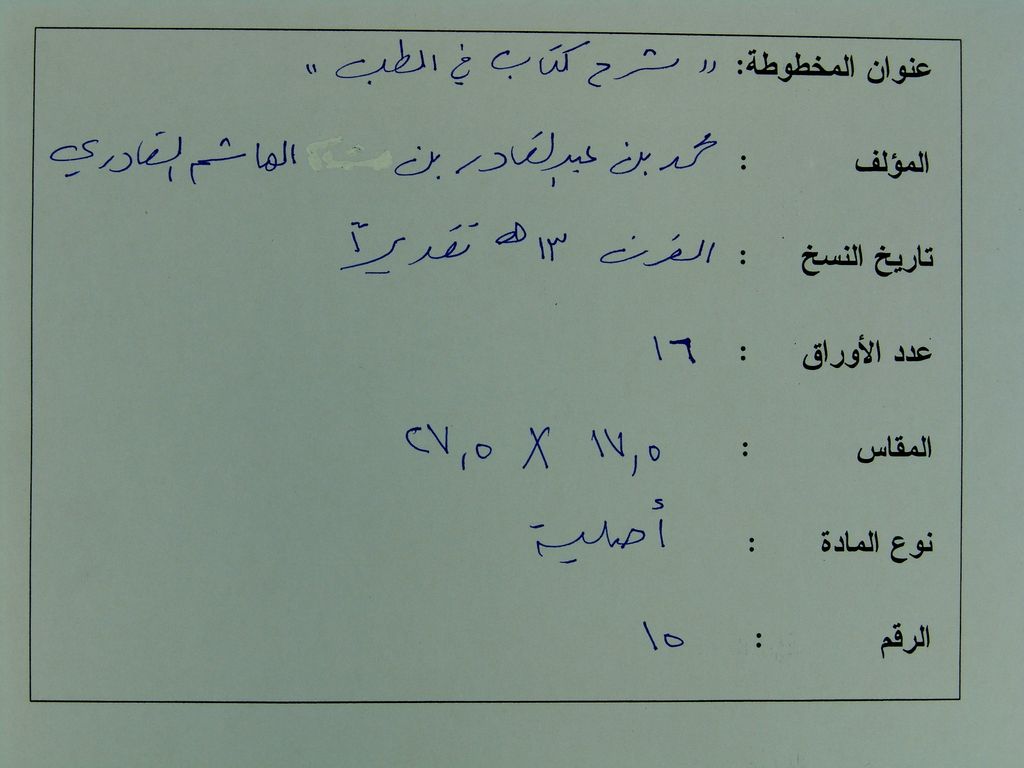 عنوان المخطوطة: "شرح كتاب في الطب"
المؤلف : محمد بن عبد القادر بن الهاشم القادري
تاريخ النسخ : القرن ١٣ هـ تقديراً
عدد الأوراق : ١٦
المقاس : ١٧,٥ X ٢٧,٥
نوع المادة : أصلية
الرقم : ١٥